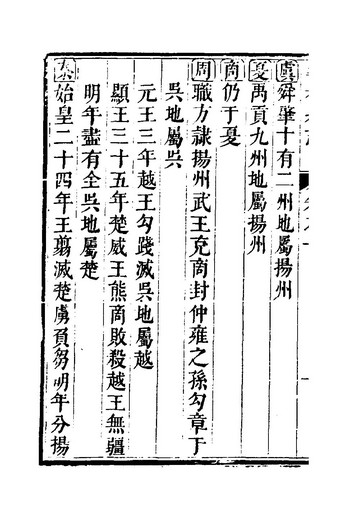 虞舜肇十有二州地屬揚州
夏禹貢九州地屬揚州
商仍于夏
周職方隷揚州武王克商封仲雍之孫勾章于
吳地屬吳
元王三年越王勾踐滅吳地屬越
顯王三十五年楚威王熊商敗殺越王無疆
明年盡有全吳地屬楚
秦始皇二十四年王翦滅楚虜負芻明年分揚